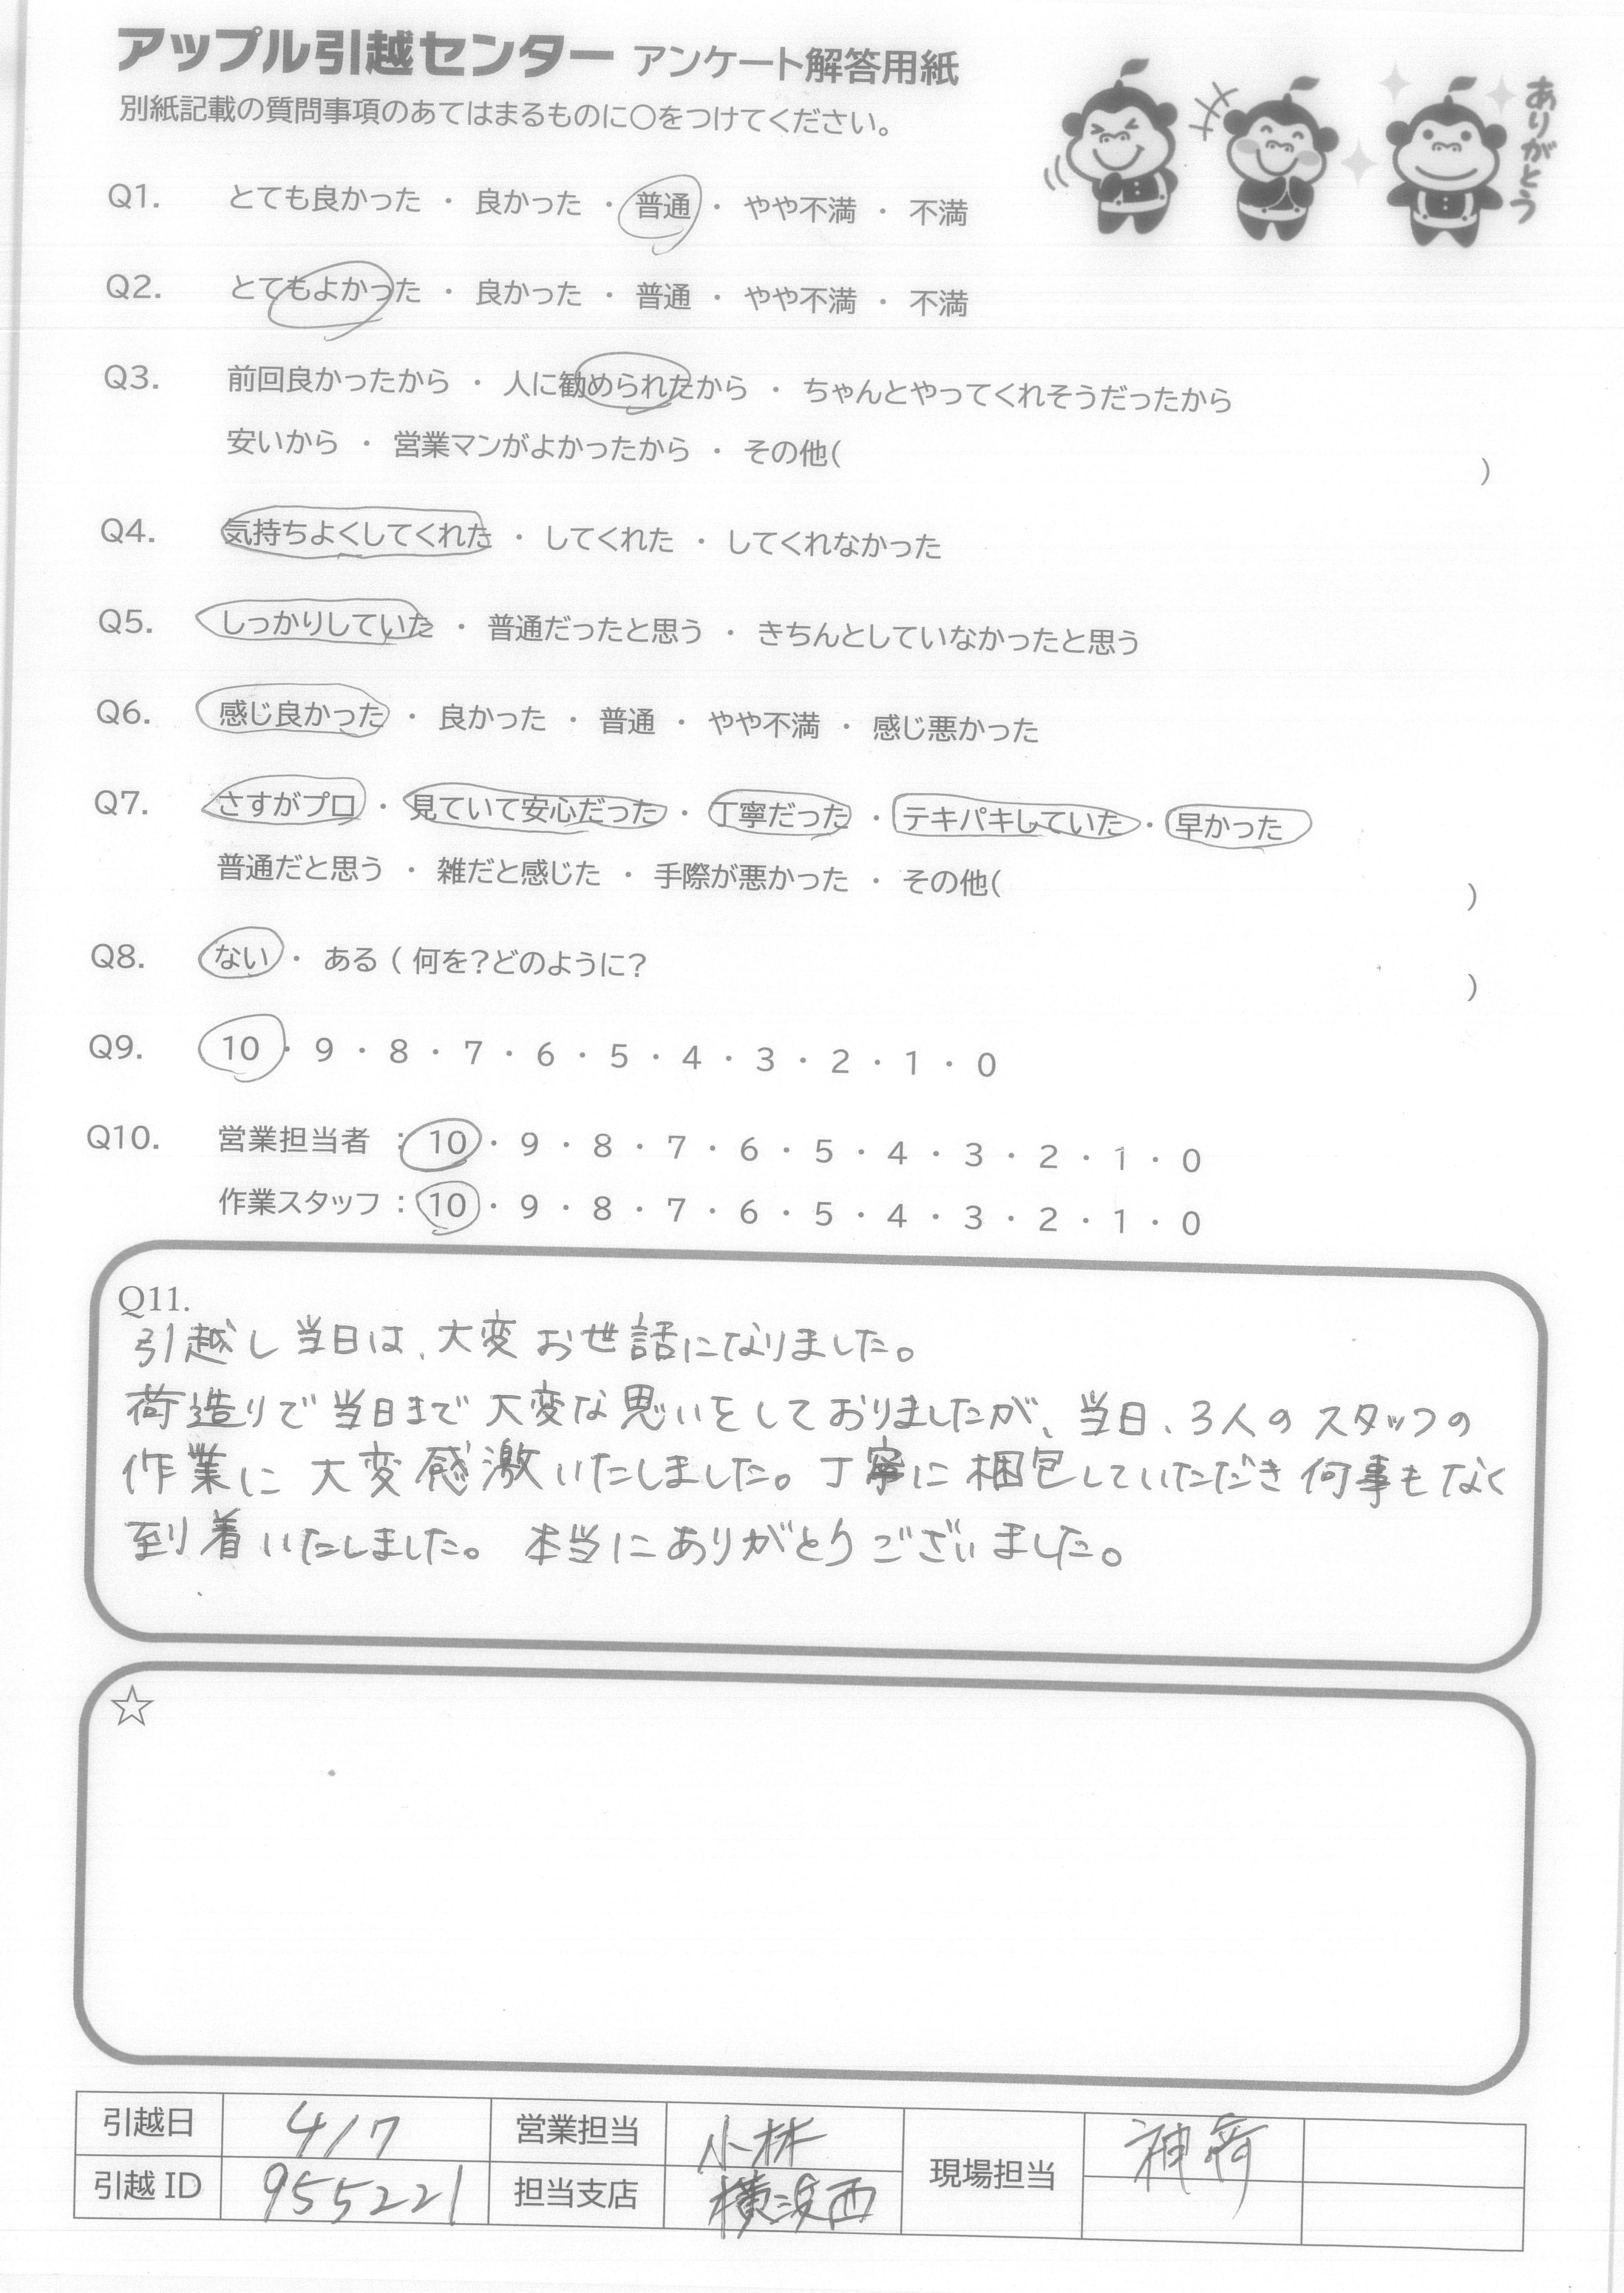 アップル引越センター アンケート解答用紙
ありがとう
別紙記載の質問事項のあてはまるものに○をつけてください。
Q1. とても良かった ・ 良かった ・ 普通 ・ やや不満 ・ 不満
Q2. とてもよかった ・ 良かった ・ 普通 ・ やや不満 ・ 不満
Q3. 前回良かったから ・ 人に勧められたから ・ ちゃんとやってくれそうだったから
安いから ・ 営業マンがよかったから ・ その他( )
Q4. 気持ちよくしてくれた ・ してくれた ・ してくれなかった
Q5. しっかりしていた ・ 普通だったと思う ・ きちんとしていなかったと思う
Q6. 感じ良かった ・ 良かった ・ 普通 ・ やや不満 ・ 感じ悪かった
Q7. さすがプロ ・ 見ていて安心だった ・ 丁寧だった ・ テキパキしていた ・ 早かった
普通だと思う ・ 雑だと感じた ・ 手際が悪かった ・ その他( )
Q8. ない ・ ある ( 何を?どのように? )
Q9. 10 ・ 9 ・ 8 ・ 7 ・ 6 ・ 5 ・ 4 ・ 3 ・ 2 ・ 1 ・ 0
Q10. 営業担当者 : 10 ・ 9 ・ 8 ・ 7 ・ 6 ・ 5 ・ 4 ・ 3 ・ 2 ・ 1 ・ 0
作業スタッフ : 10 ・ 9 ・ 8 ・ 7 ・ 6 ・ 5 ・ 4 ・ 3 ・ 2 ・ 1 ・ 0
Q11.
引越し当日は、大変お世話になりました。
荷造りで当日まで大変な思いをしておりましたが、当日、3人のスタッフの
作業に大変感激いたしました。丁寧に梱包していただき何事もなく
到着いたしました。本当にありがとうございました。
☆
引越日 4/7 営業担当 小林 現場担当
引越ID 955221 担当支店 横浜西